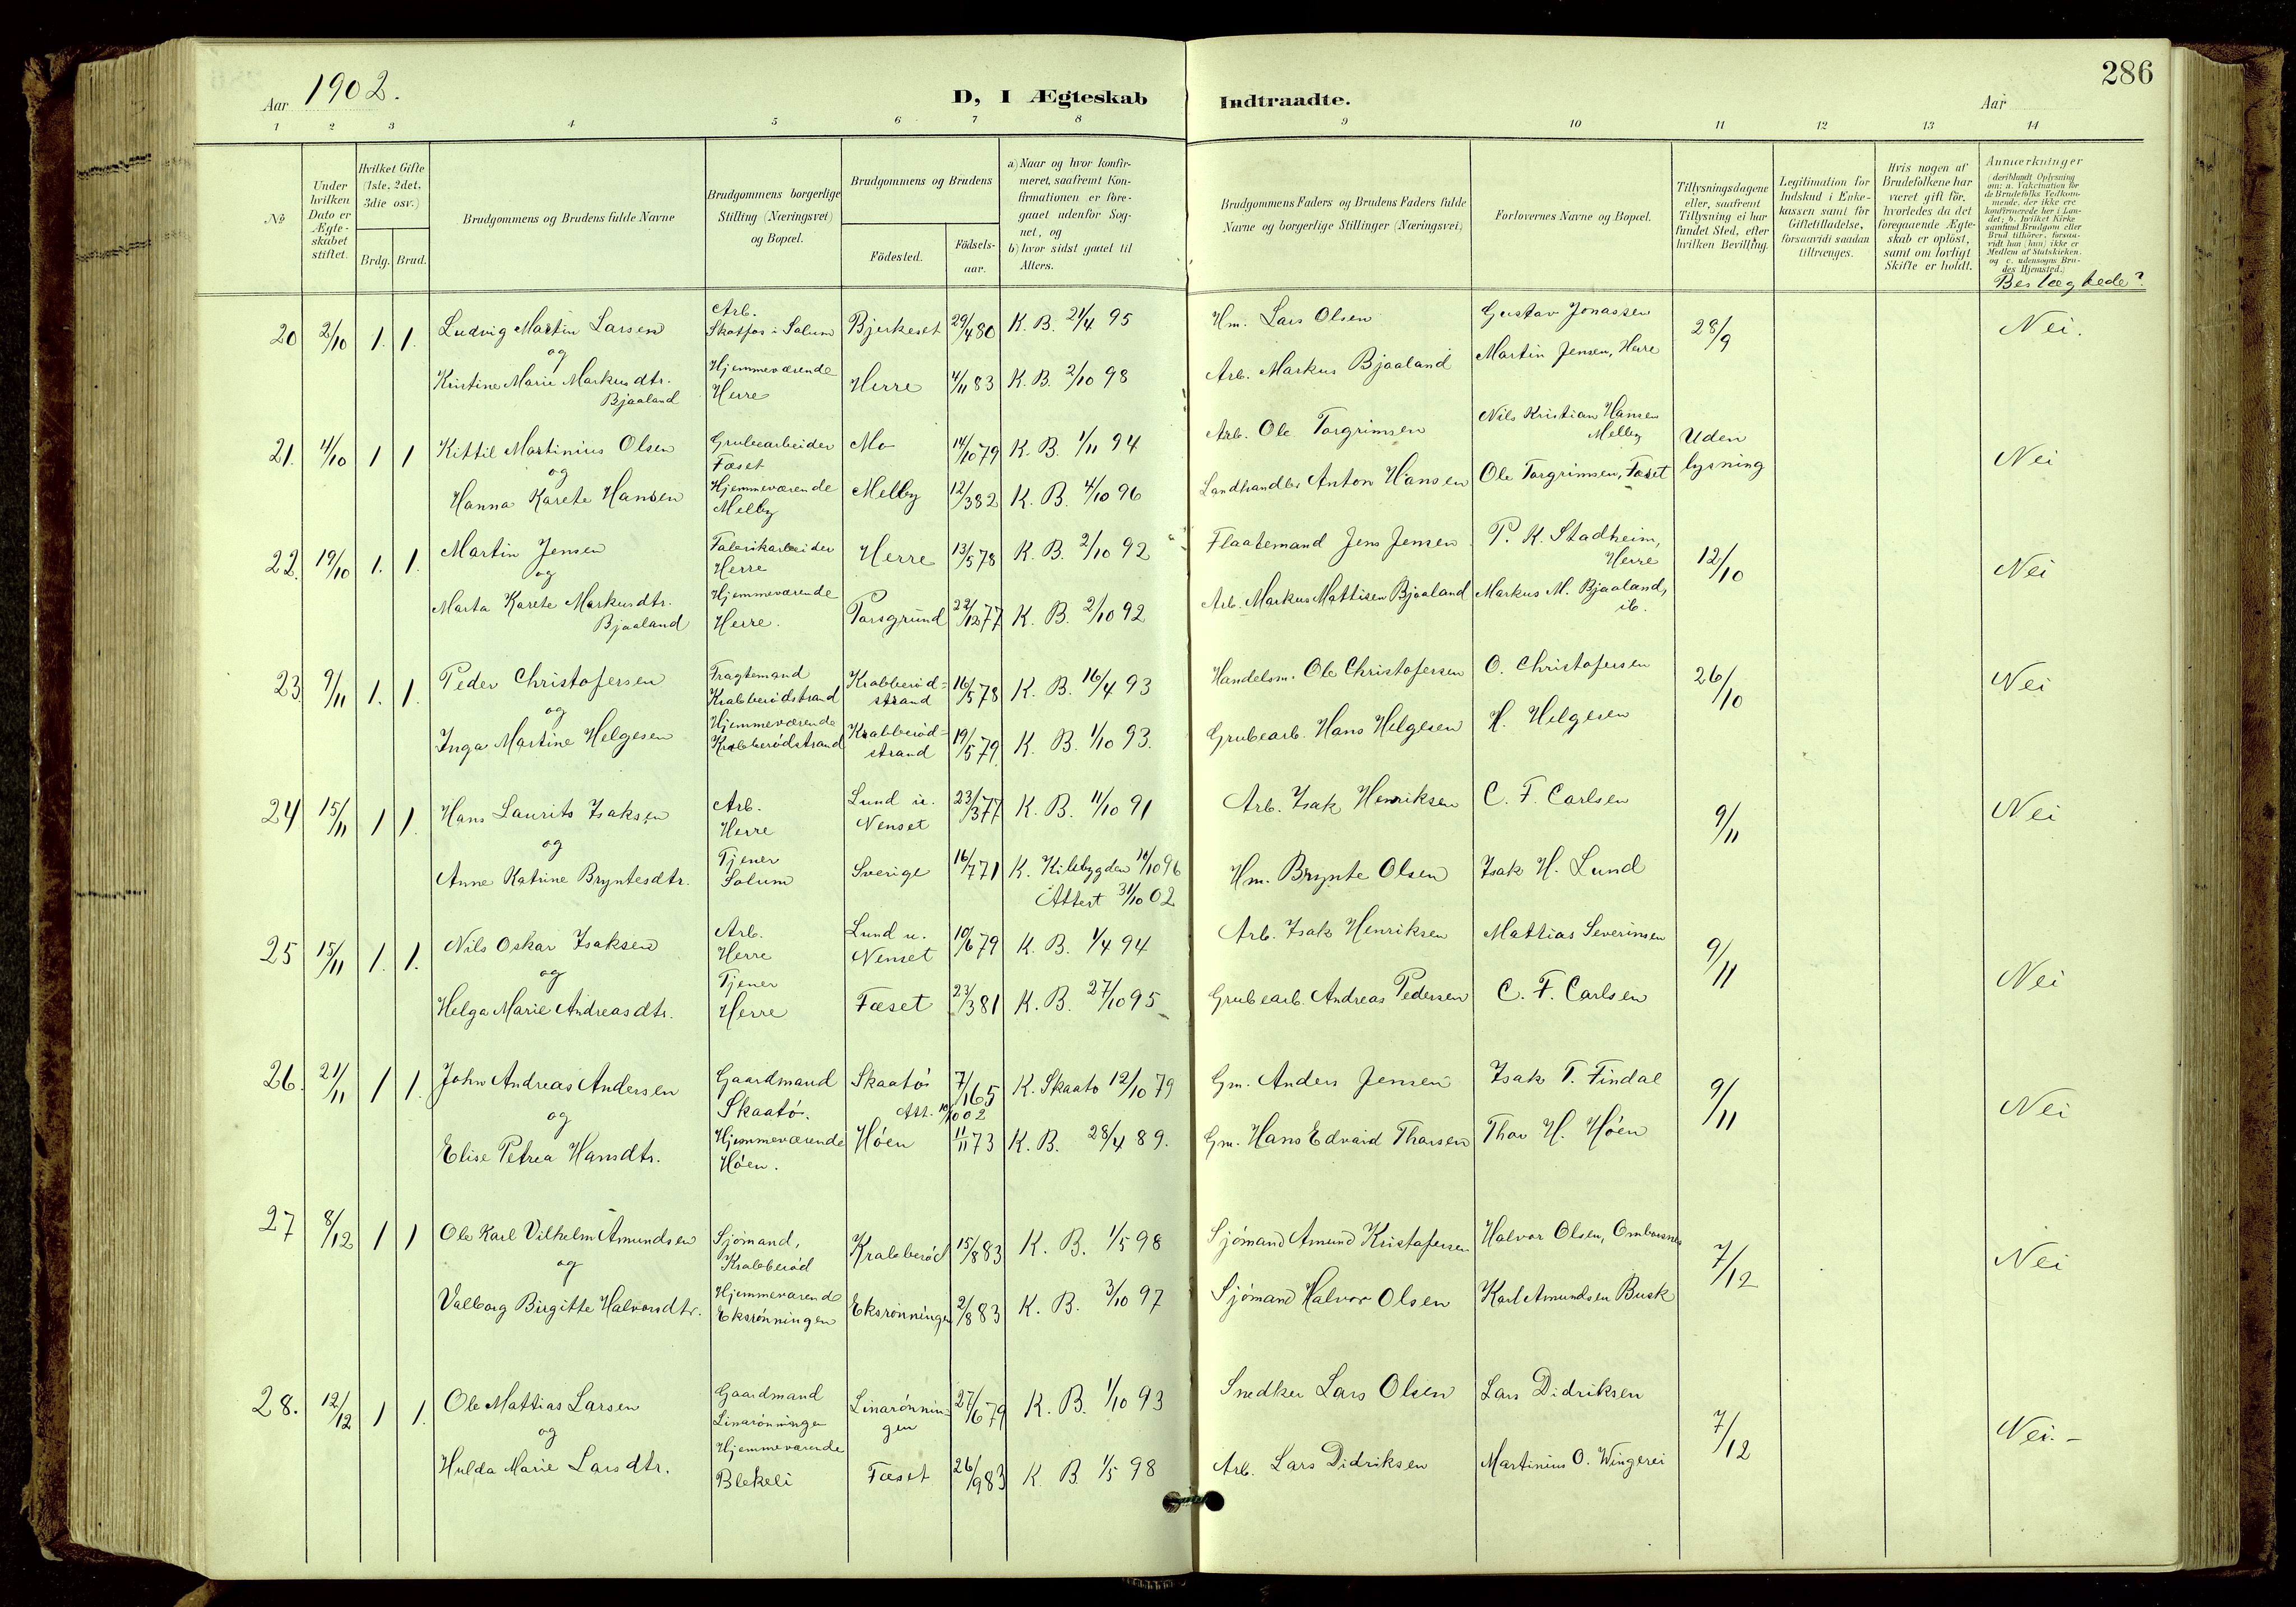 286
Aar 1902.
D, I Ægteskab Indtraadte.
Aar
1 2 3 4 5 6 7 8 9 10 11 12 13 14
№
Under hvilken Dato er Ægteskabet stiftet.
Hvilket Gifte (1ste, 2det, 3die osv.)
Brdg. Brud.
Brudgommens og Brudens fulde Navne
Brudgommens borgerlige Stilling (Næringsvei) og Bopæl.
Brudgommens og Brudens
Födested.
Födselsaar.
a) Naar og hvor konfirmeret, saafremt Konfirmationen er foregaaet udenfor Sognet, og
b) hvor sidst gaaet til Alters.
Brudgommens Faders og Brudens Faders fulde Navne og borgerlige Stillinger (Næringsvei)
Forlovernes Navne og Bopæl.
Tillysningsdagene eller, saafremt Tillysning ei har fundet Sted, efter hvilken Bevilling.
Legitimation for Indskud i Enkekassen samt for Giftetilladelse, forsaavidt saadan tiltrænges.
Hvis nogen af Brudefolkene har været gift för, hvorledes da det foregaaende Ægteskab er oplöst, samt om lovligt Skifte er holdt.
Anmærkninger (deriblandt Oplysning om: a. Vakcination for de Brudefolks Vedkommende, der ikke ere konfirmerede her i Landet; b. hvilket Kirkesamfund Brudgom eller Brud tilhörer, forsaavidt han (hun) ikke er Medlem af Statskirken. og c. udensogns Brudes Hjemsted.)
Beslægtede?
20 2/10 1. 1. Ludvig Martin Larsen Arb. Skotfos i Solum Bjerkeset 29/4 80 K. B. 21/4 95 Hm. Lars Olsen Gustav Jonassen 28/9 Nei.
og
Kristine Marie Markusdtr. Bjaaland Hjemmeværende Herre Herre 4/11 83 K. B. 2/10 98 Arb. Markus Bjaaland Martin Jensen, Herre
21. 4/10 1 1 Kittil Martinius Olsen Grubearbeider Fæset Mo 14/10 79 K. B. 1/11 94 Arb. Ole Torgrimsen Nils Kristian Hansen Melby Uden lysning Nei
og
Hanna Karete Hansen Hjemmeværende Melby Melby 12/3 82 K. B. 4/10 96 Landhandler Anton Hansen Ole Torgrimsen, Fæset
22. 19/10 1. 1. Martin Jensen Fabrikarbeider Herre Herre 13/5 78 K. B. 2/10 92 Flaatemand Jens Jensen P. K. Stadheim, Herre 12/10 Nei
og
Marta Karete Markusdtr. Bjaaland Hjemmeværende Herre. Porsgrund 22/12 77 K. B. 2/10 92 Arb. Markus Mattisen Bjaaland Markus M. Bjaaland, ib.
23. 9/11 1. 1. Peder Christofersen Fragtemand Krabberødstrand Krabberødstrand 16/5 78 K. B. 16/4 93 Handelsm. Ole Christofersen O. Christofersen 26/10 Nei
og
Inga Martine Helgesen Hjemmeværende Krabberødstrand Krabberødstrand 19/5 79. K. B. 1/10 93. Grubearb. Hans Helgesen H. Helgesen
24 15/11 1 1. Hans Laurits Isaksen Arb. Herre Lund u. Nenset 23/3 77 K. B. 11/10 91 Arb. Isak Henriksen C. F. Carlsen 9/11 Nei
og
Anne Katrine Bryntesdtr. Tjener Solum Sverige 16/7 71 K. Kilebygden 11/10 96 Attest 31/10 02 Hm. Brynte Olsen Isak H. Lund
25 15/11 1. 1. Nils Oskar Isaksen Arb. Herre Lund u. Nenset 10/6 79 K. B. 1/4 94 Arb. Isak Henriksen Mattias Severinsen 9/11 Nei
og
Helga Marie Andreasdtr. Tjener Herre Fæset 23/3 81 K. B. 27/10 95 Grubearb. Andreas Pedersen C. F. Carlsen
26. 21/11 1 1. John Andreas Andersen Gaardmand Skaatö. Skaatö 7/1 65 Att. 10/10 02 K. Skaatö 12/10 79 Gm. Anders Jensen Isak T. Findal 9/11 Nei
og
Elise Petrea Hansdtr. Hjemmeværende Höen. Höen 11/11 73 K. B. 28/4 89. Gm. Hans Edvard Thorsen Thor H. Höen
27 8/12 1 1 Ole Karl Vilhelm Amundsen Sjömand, Krabberød Krabberød 15/8 83 K. B. 1/5 98 Sjömand Amund Kristofersen Halvor Olsen, Omborsnes 7/12 Nei
og
Valborg Birgitte Halvorsdtr. Hjemmeværende Eksrönningen Eksrönningen 2/8 83 K. B. 3/10 97 Sjömand Halvor Olsen Karl Amundsen Busk
28. 12/12 1 1. Ole Mattias Larsen Gaardmand Linarönningen Linarönningen 27/6 79 K. B. 1/10 93 Snedker Lars Olsen Lars Didriksen 7/12 Nei. -
og
Hulda Marie Larsdtr. Hjemmeværende Blekeli Fæset 26/9 83 K. B. 1/5 98 Arb. Lars Didriksen Martinius O. Wingerei